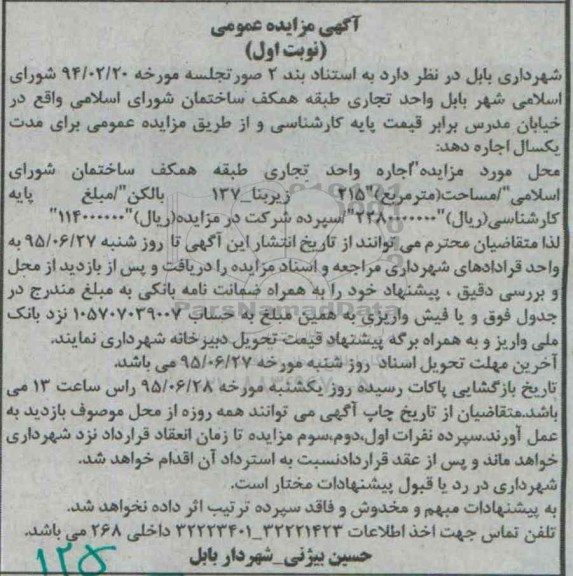 آگهی مزایده عمومی
(نوبت اول)
شهرداری بابل در نظر دارد به استناد بند ۲ صورتجلسه مورخه ۹۴/۰۲/۲۰ شورای
اسلامی شهر بابل واحد تجاری طبقه همکف ساختمان شورای اسلامی واقع در
خیابان مدرس برابر قیمت پایه کارشناسی و از طریق مزایده عمومی برای مدت
یکسال اجاره دهد:
محل مورد مزایده"اجاره واحد تجاری طبقه همکف ساختمان شورای
اسلامی"/مساحت(مترمربع)"۲۱۵ زیربنا_۱۳۷ بالکن"/مبلغ پایه
کارشناسی(ریال)"۲۲۸۰۰۰۰۰۰۰"/سپرده شرکت در مزایده(ریال)"۱۱۴۰۰۰۰۰۰"
لذا متقاضیان محترم می توانند از تاریخ انتشار این آگهی تا روز شنبه ۹۵/۰۶/۲۷ به
واحد قرادادهای شهرداری مراجعه و اسناد مزایده را دریافت و پس از بازدید از محل
و بررسی دقیق ، پیشنهاد خود را به همراه ضمانت نامه بانکی به مبلغ مندرج در
جدول فوق و یا فیش واریزی به همین مبلغ به حساب ۱۰۵۷۰۷۰۳۹۰۰۷ نزد بانک
ملی واریز و به همراه برگه پیشنهاد قیمت تحویل دبیرخانه شهرداری نمایند.
آخرین مهلت تحویل اسناد روز شنبه مورخه ۹۵/۰۶/۲۷ می باشد.
تاریخ بازگشایی پاکات رسیده روز یکشنبه مورخه ۹۵/۰۶/۲۸ راس ساعت ۱۳ می
باشد.متقاضیان از تاریخ چاپ آگهی می توانند همه روزه از محل موصوف بازدید به
عمل آورند.سپرده نفرات اول،دوم،سوم مزایده تا زمان انعقاد قرارداد نزد شهرداری
خواهد ماند و پس از عقد قراردادنسبت به استرداد آن اقدام خواهد شد.
شهرداری در رد یا قبول پیشنهادات مختار است.
به پیشنهادات مبهم و مخدوش و فاقد سپرده ترتیب اثر داده نخواهد شد.
تلفن تماس جهت اخذ اطلاعات ۳۲۲۲۱۴۲۳_۳۲۲۲۳۴۰۱ داخلی ۲۶۸ می باشد.
حسین بیژنی_شهردار بابل
۱۲۵
ParsNamadData